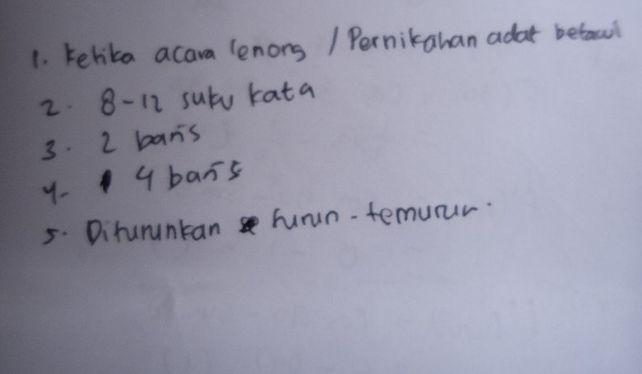 1. Ketika acara lenong / Pernikahan adat betawi
2. 8-12 suku kata
3. 2 baris
4. 4 baris
5. Diturunkan turun-temurun.